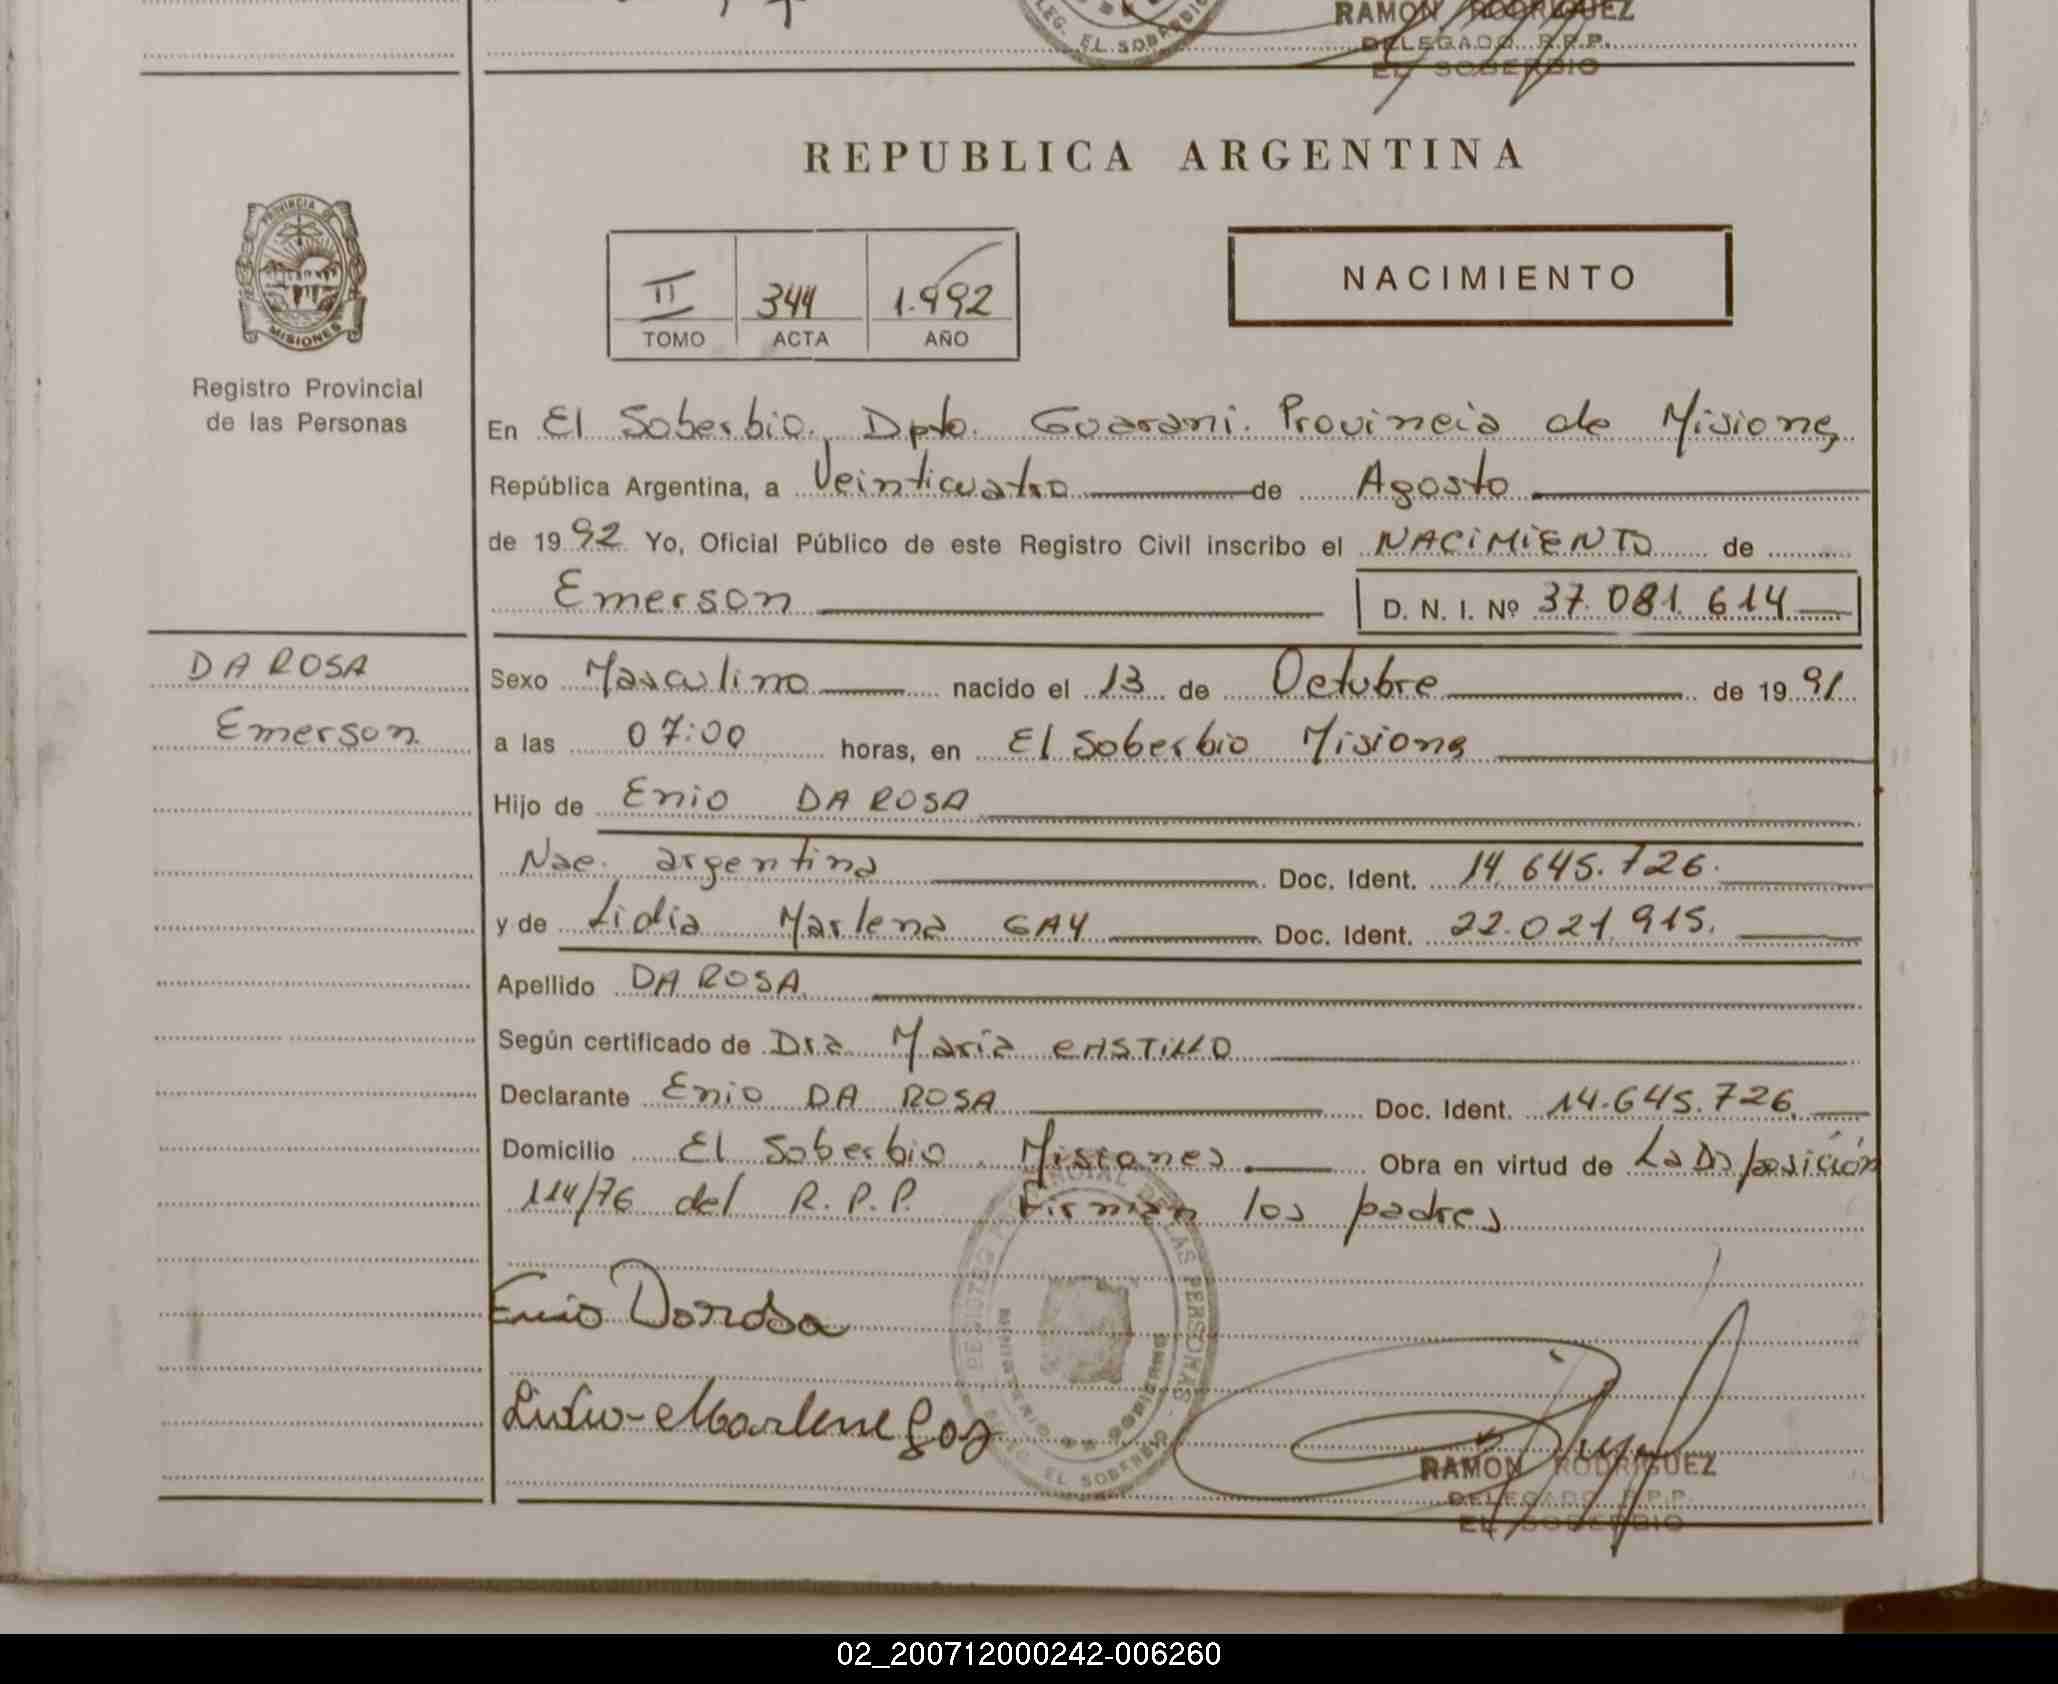 LEG. EL SOBERBIO
RAMON RODRIGUEZ
DELEGADO R.P.P.
EL SOBERBIO
REPUBLICA ARGENTINA
PROVINCIA DE
MISIONES
Registro Provincial
de las Personas
II 344 1.992
TOMO ACTA AÑO
NACIMIENTO
En El Soberbio, Dpto. Guarani. Provincia de Misiones
República Argentina, a Veinticuatro de Agosto
de 1992 Yo, Oficial Público de este Registro Civil inscribo el NACIMIENTO de
Emerson D. N. I. Nº 37.081.614
DA ROSA
Emerson
Sexo Masculino nacido el 13 de Octubre de 1991
a las 07:00 horas, en El Soberbio Misiones
Hijo de Enio DA ROSA
Nac. argentina Doc. Ident. 14.645.726.
y de Lidia Marlena GAY Doc. Ident. 22.021.915.
Apellido DA ROSA
Según certificado de Dra Maria CASTILLO
Declarante Enio DA ROSA Doc. Ident. 14.645.726.
Domicilio El Soberbio Misiones Obra en virtud de La Disposición
114/76 del R.P.P. Firman los padres
Enio Darosa
REGISTRO PROVINCIAL DE LAS PERSONAS
MINISTERIO GOBIERNO
DELEG. EL SOBERBIO
RAMON RODRIGUEZ
DELEGADO R.P.P.
EL SOBERBIO
02_200712000242-006260